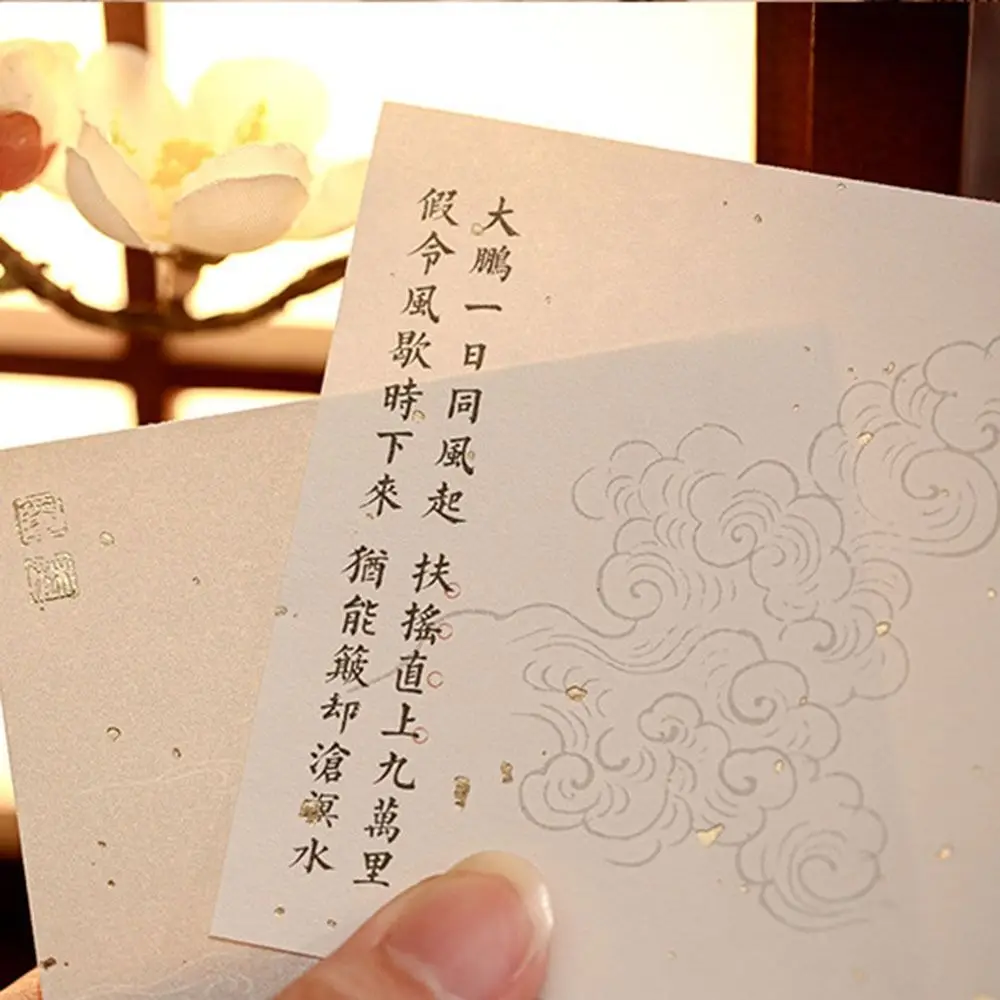 大鵬一日同風起 扶搖直上九萬里
假令風歇時下來 猶能簸却滄溟水